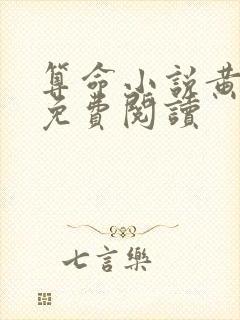 算命小說黃
免費閱讀
七言樂